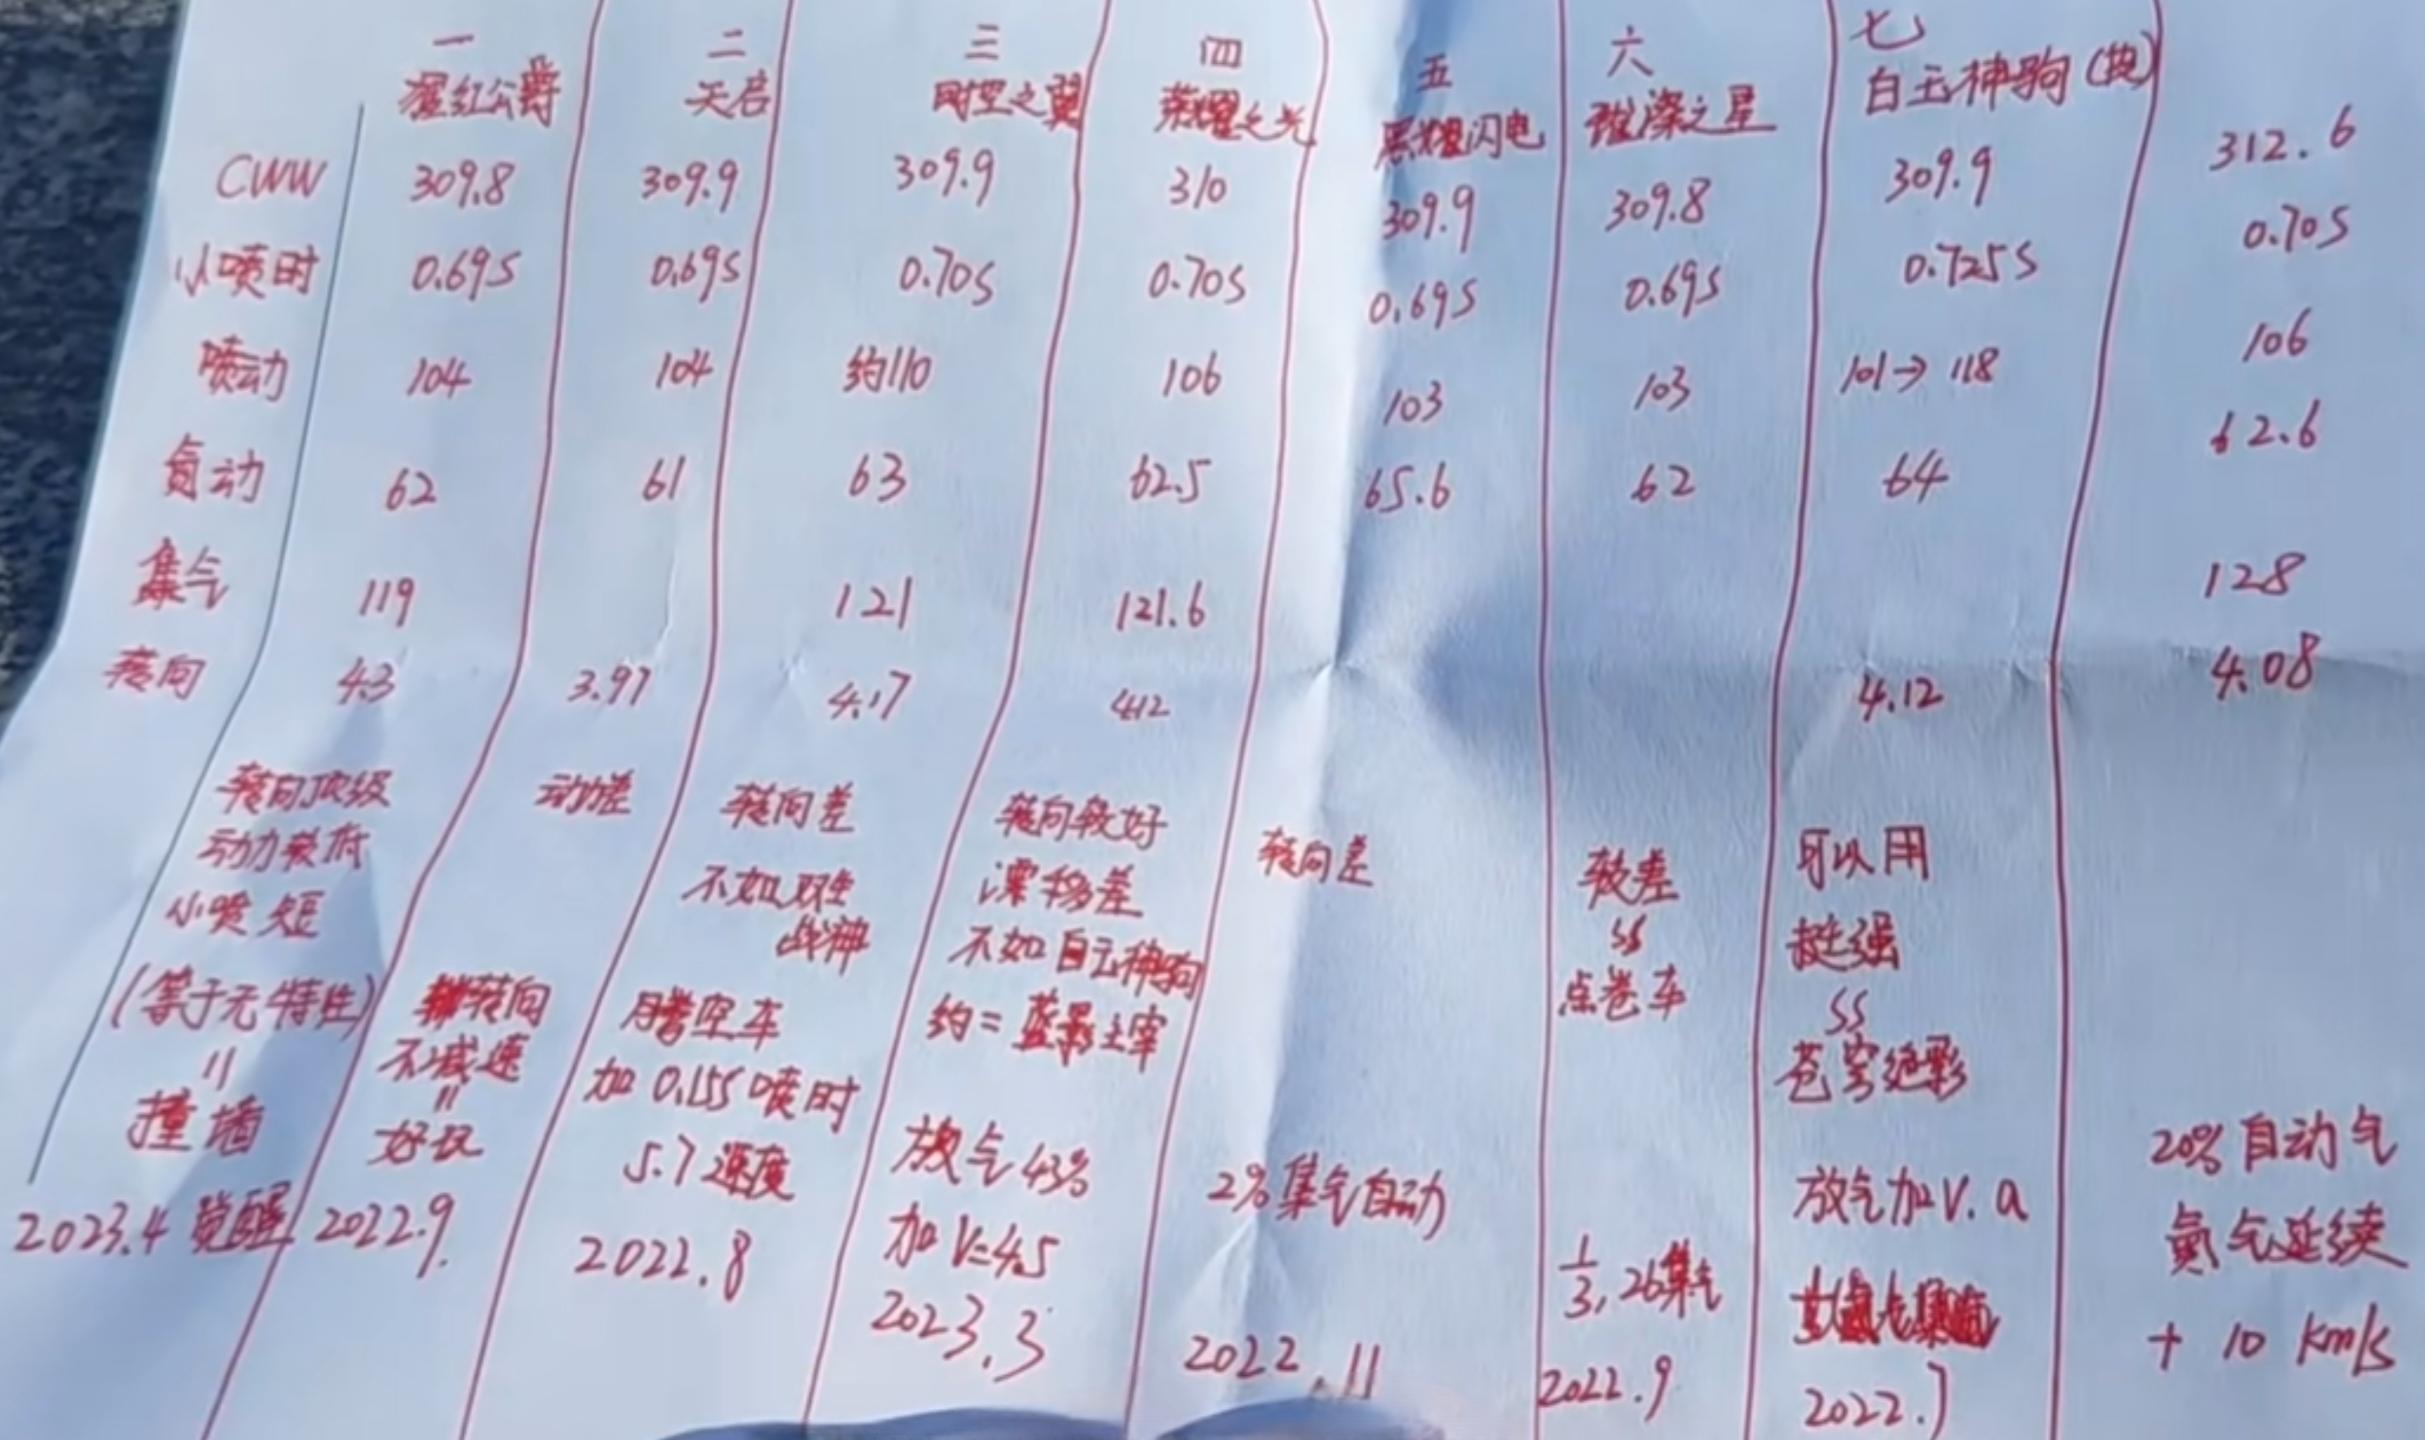 一 二 三 四 五 六 七
猩红公爵 天启 时空之翼 荣耀之光 黑耀闪电 璀璨之星 白玉神驹(技)
CWW 309.8 309.9 309.9 310 309.9 309.8 309.9 312.6
小喷时 0.69s 0.69s 0.70s 0.70s 0.69s 0.69s 0.725s 0.70s
喷动 104 104 约110 106 103 103 101→118 106
氮动 62 61 63 62.5 65.6 62 64 62.6
集气 119 121 121.6 128
转向 4.3 3.97 4.17 4.12 4.12 4.08
转向顶级
动力较低
小喷短
(等于无特性)
=
撞墙
2023.4 觉醒
动力差
转向
不减速
=
好玩
2022.9.
转向差
不如双生
战神
腾空车
加0.15s喷时
5.7速度
2022.8
转向较好
漂移差
不如白玉神驹
约=蓝影主宰
放气43%
加V=4.5
2023.3
转向差
2%集气自动
2022.11
较差
ss
点卷车
1/3,26集气
2022.9
可以用
挺强
ss
苍穹绝影
放气加V.a
2022.7
20%自动气
氮气延续
+10 km/s